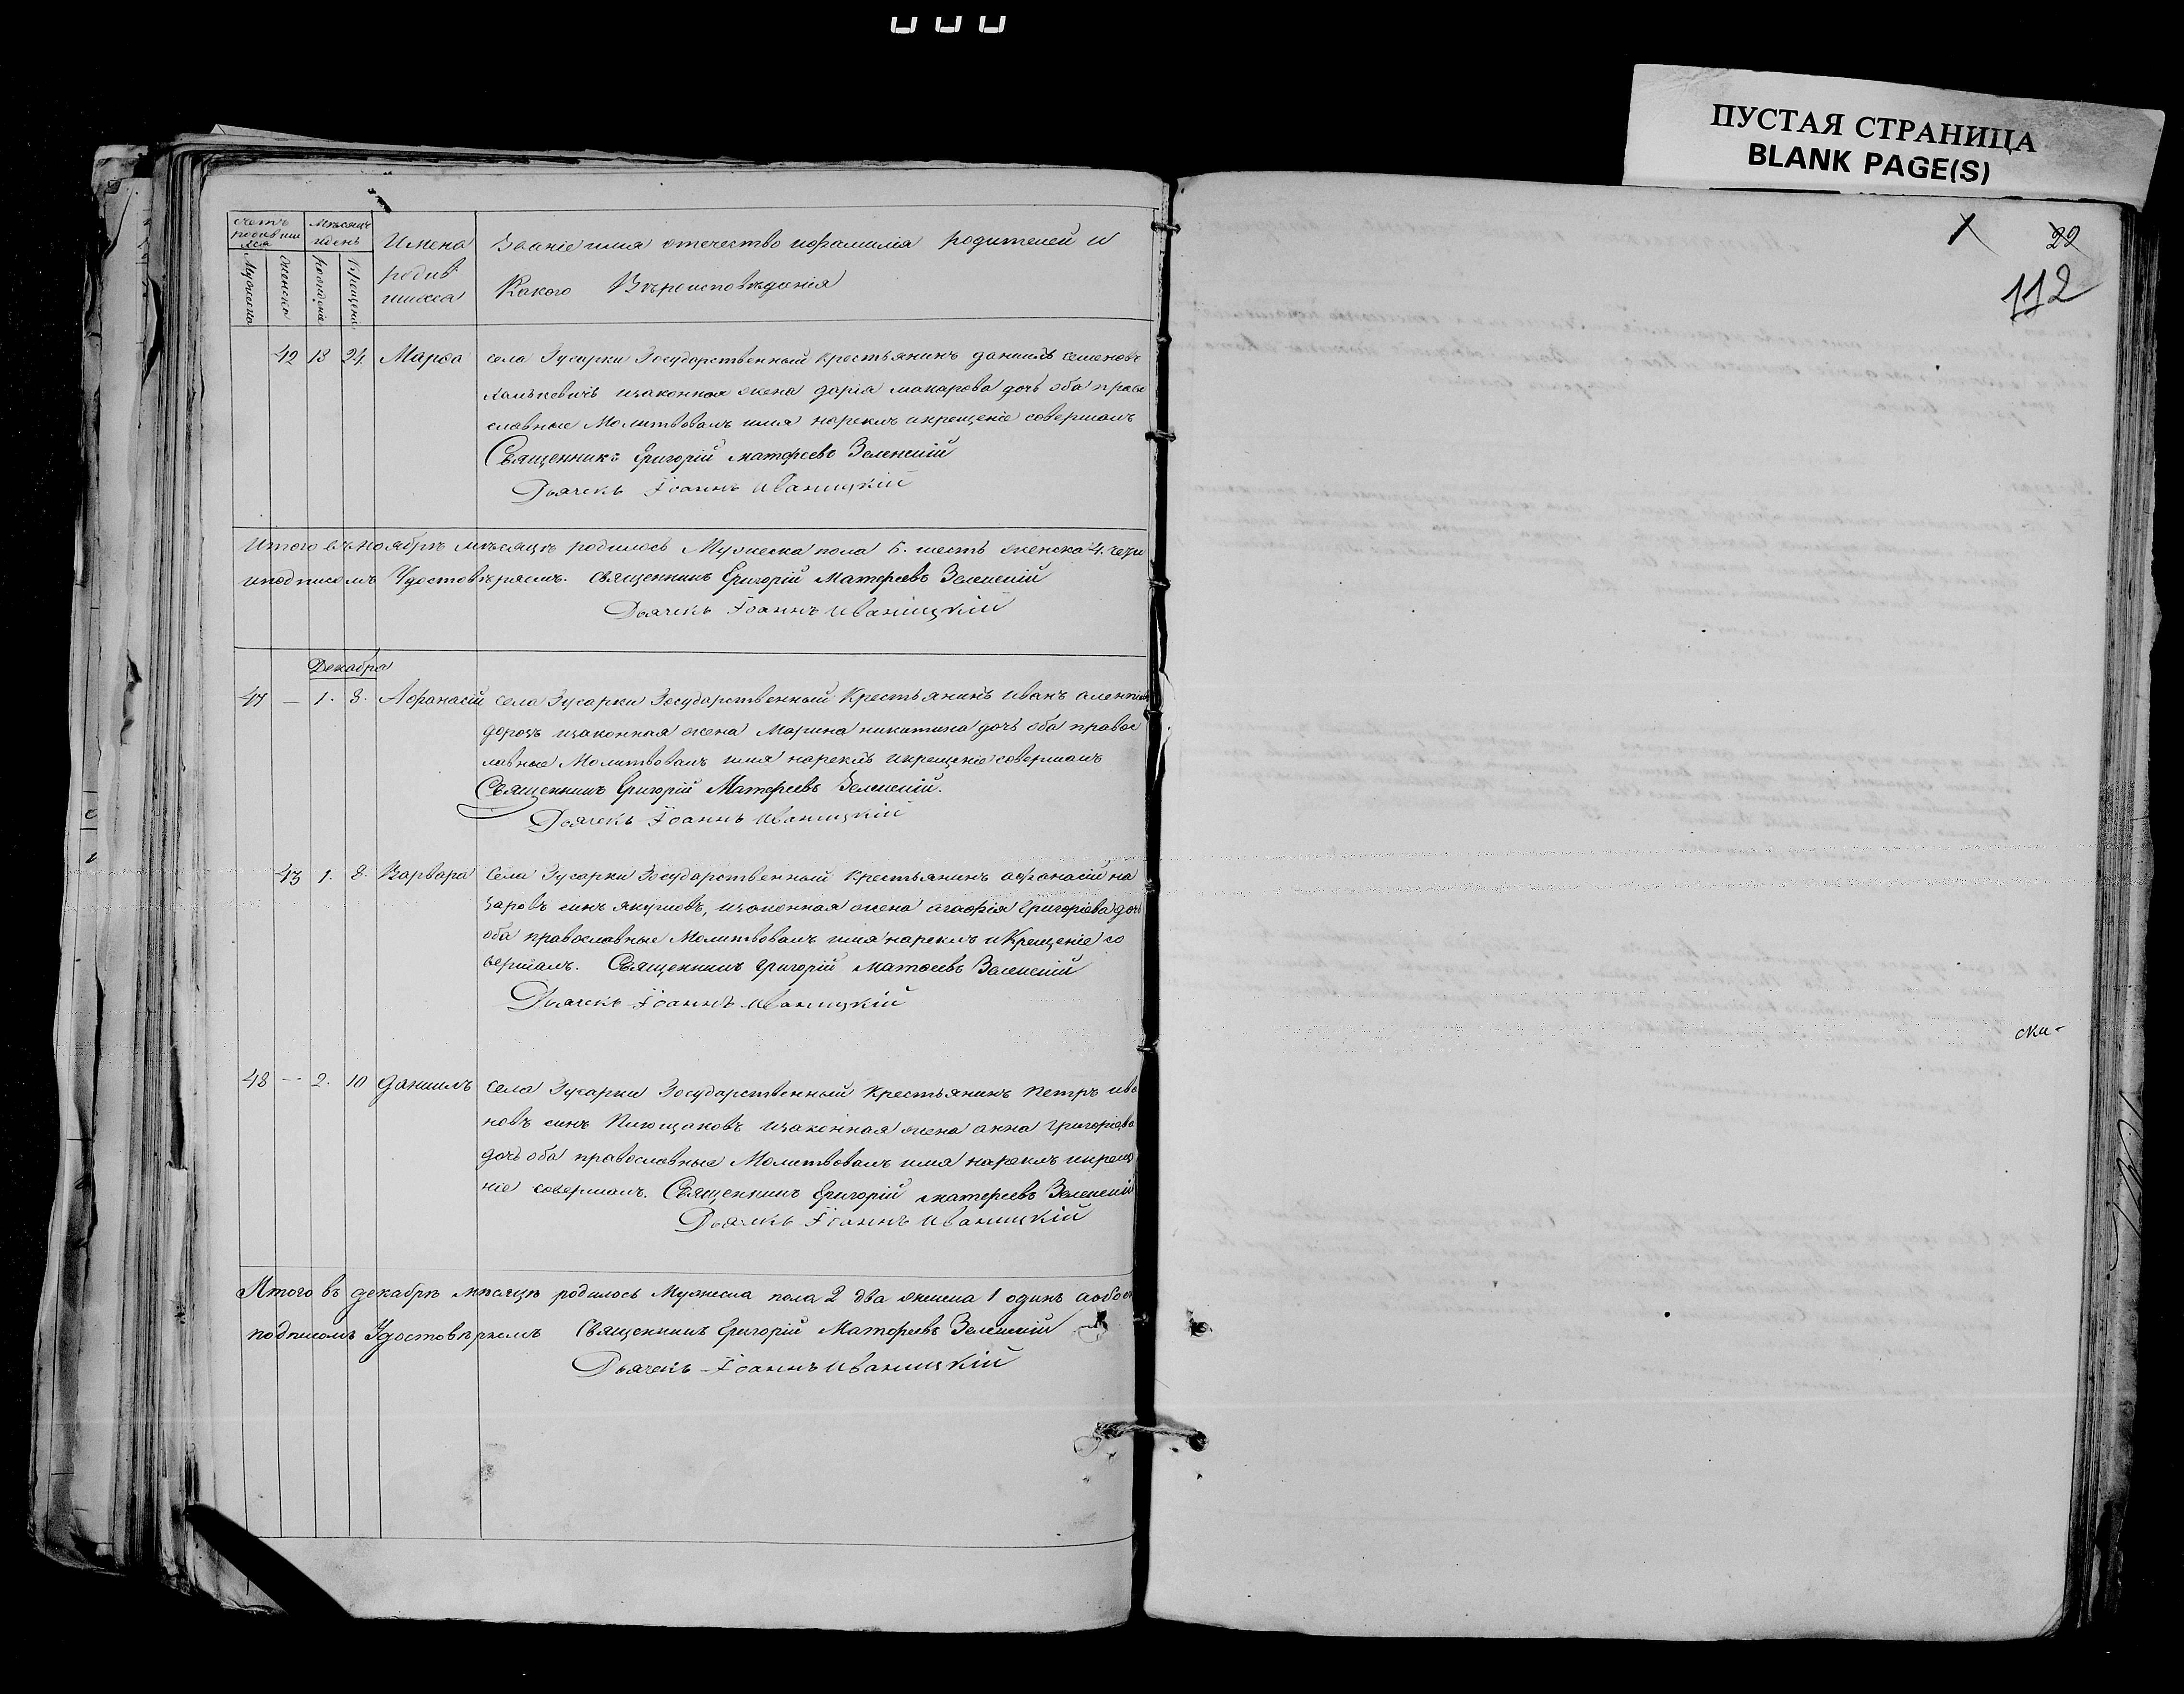 ПУСТАЯ СТРАНИЦА
BLANK PAGE(S)
счетъ родившихся
Мужеска
Женска
Мѣсяцъ и день
рожденіе
Крещеніе
Имена
родив
шихся
Званіе имя отечество и фамилія родителей и
Какого Вѣроисповѣданія
42 13 24. Марфа села Гусарки Государственный крестьянинъ даніилъ семеновъ
изаконная жена дарія макарова дочь оба право
славные Молитвовалъ имя нарекъ икрещеніе совершалъ
Священникъ Григорій матфеевъ Зеленскій
Дьячекъ Іоаннъ Иваницкій
Итого въ Ноябрѣ мѣсяцѣ родилось Мужеска пола 6. шесть женска 4. четы
иподписомъ Удостовѣряемъ. Священникъ Григорій Матфеевъ Зеленскій
Дьячекъ Іоаннъ Иваницкій
Декабрь
47 — 1. 8. Афанасій села Гусарки Государственный Крестьянинъ Иванъ
изаконная жена Марина никитина дочь оба правос
лавные Молитвовалъ имя нарекъ икрещеніе совершалъ
Священникъ Григорій Матфеевъ Зеленскій.
Дьячекъ Іоаннъ Иваницкій
43 1. 8. Варвара Села Гусарки Государственный Крестьянинъ афанасій на
заровъ синъ якушовъ, изаконная жена агафія Григоріева дочь
оба православные Молитвовалъ имя нарекъ иКрещеніе со
вершалъ. Священникъ Григорій матфеевъ Зеленскій
Дьячекъ Іоаннъ Иваницкій
48 — 2. 10 Даніилъ Села Гусарки Государственный Крестьянинъ Петръ ива
новъ синъ изаконная жена анна Григоріева
дочь оба православные Молитвовалъ имя нарекъ икреще
ніе совершалъ. Священникъ Григорій матфеевъ Зеленскій
Дьячекъ Іоаннъ Иваницкій
Итого въ декабрѣ мѣсяцѣ родилось Мужеска пола 2 два женска 1 одинъ
подписомъ Удостовѣряемъ Священникъ Григорій Матфеевъ Зеленскій
Дьячекъ Іоаннъ Иваницкій
112
ски-